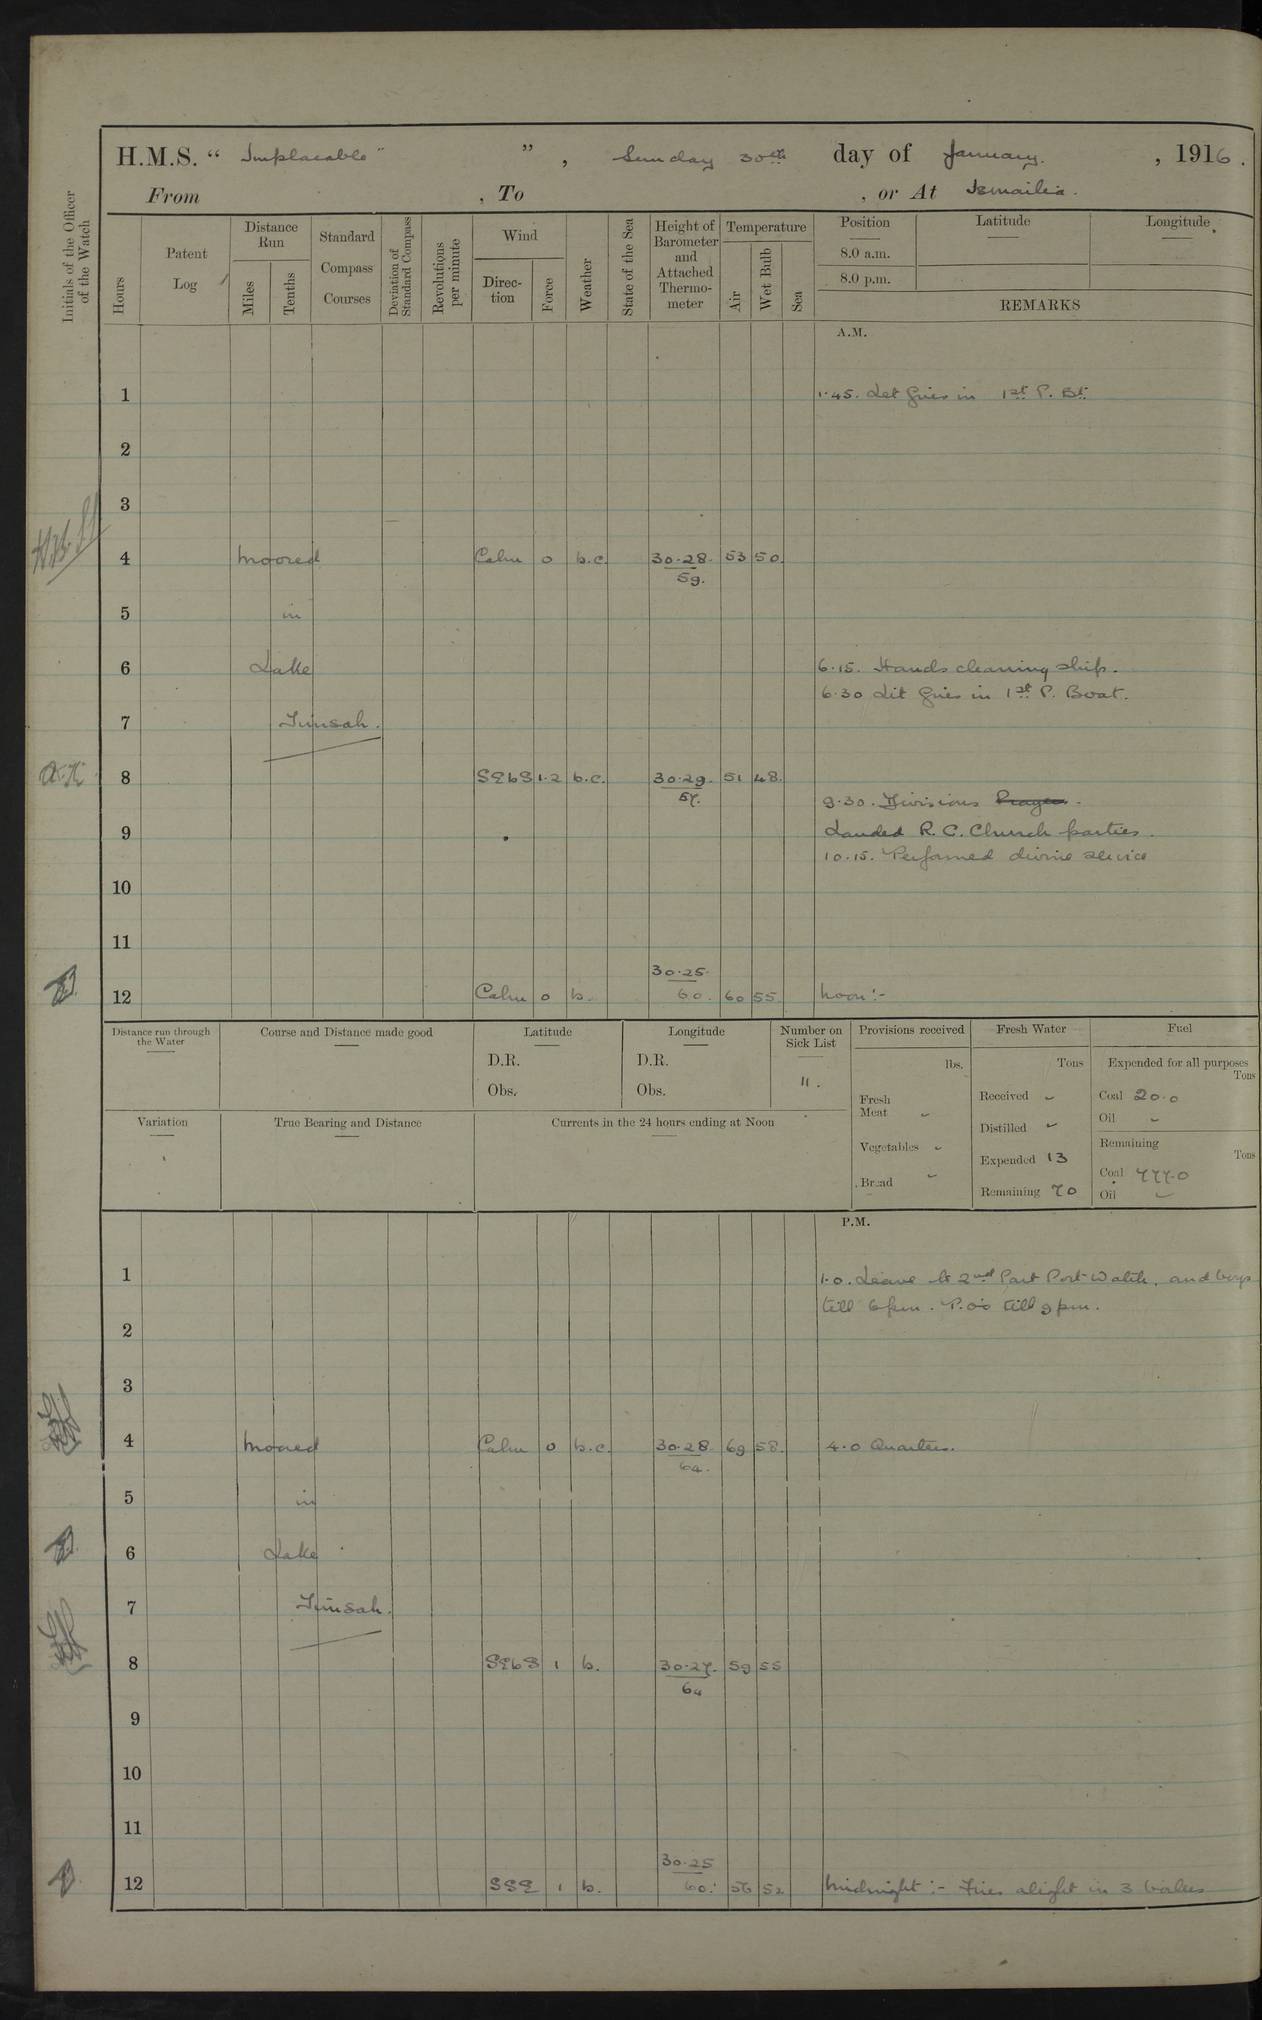 H.M.S. “ Implacable " ” , Sunday 30th day of January. , 1916.
From , To , or At Ismailia.
Initials of the Officer of the Watch
Hours
Patent Log
Distance Run
Miles
Tenths
Standard Compass Courses
Deviation of Standard Compass
Revolutions per minute
Wind
Direc-tion
Force
Weather
State of the Sea
Height of Barometer and Attached Thermo-meter
Temperature
Air
Wet Bulb
Sea
Position
Latitude
Longitude
8.0 a.m.
8.0 p.m.
REMARKS
A.M.
1 1.45. Let fires in 1st P. Bt.
2
3
4 Moored Calm 0 b.c. 30.28. 53 50.
59.
5 in
6 Lake 6.15. Hands cleaning ship.
6.30 Lit fires in 1st P. Boat.
7 Timsah.
8 SEbS 1.2 b.c. 30.29. 51 48.
57.
9.30. Divisions Prayers.
9 Landed R.C. Church parties.
10.15. Performed divine service
10
11
30.25.
12 Calm 0 b. 60. 60 55 Noon:-
Distance run through the Water
Course and Distance made good
Latitude
D.R.
Obs.
Longitude
D.R.
Obs.
Number on Sick List
11.
Provisions received
lbs.
Fresh Meat -
Vegetables -
Bread -
Fresh Water
Tons
Received -
Distilled -
Expended 13
Remaining 70
Fuel
Expended for all purposes
Tons
Coal 20.0
Oil -
Remaining
Tons
Coal 777.0
Oil -
Variation
True Bearing and Distance
Currents in the 24 hours ending at Noon
P.M.
1 1.0. Leave to 2nd Part Port Watch, and boys
till 6pm. P.O's till 9pm.
2
3
4 Moored Calm 0 b.c. 30.28 69 58. 4.0 Quarters.
64.
5 in
6 Lake
7 Timsah.
8 SEbS 1 b. 30.27. 59 55
64
9
10
11
30.25
12 SSE 1 b. 60. 56 52 Midnight:- Fires alight in 3 boilers